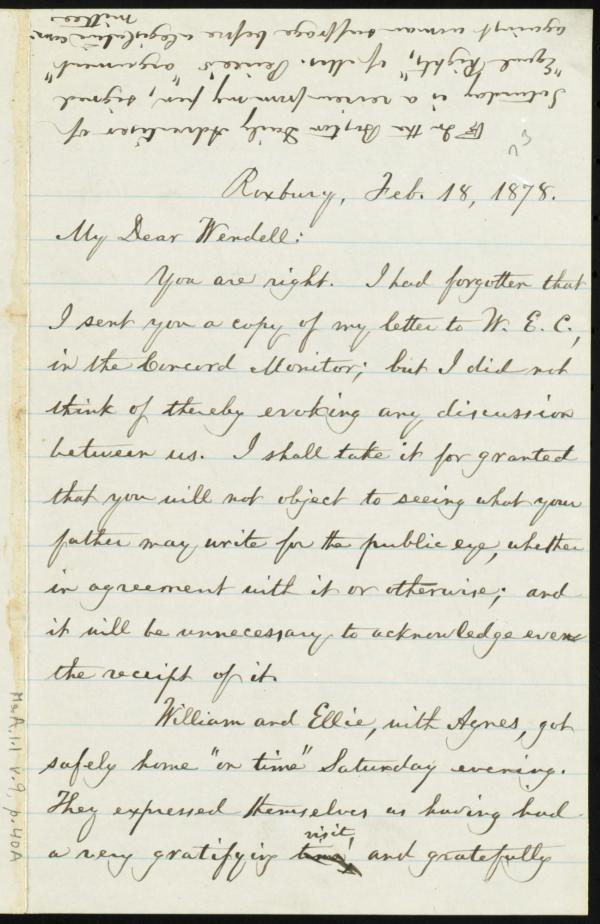 ☞ In the Boston Daily Advertiser of
Saturday is a review from my pen, signed
"Equal Rights," of Mrs. "argument"
against woman suffrage before a legislative com-
mittee
Roxbury, Feb. 18, 1878.
My Dear Wendell:
You are right. I had forgotten that
I sent you a copy of my letter to W. E. C.,
in the Concord Monitor; but I did not
think of thereby evoking any discussion
between us. I shall take it for granted
that you will not object to seeing what your
father may write for the public eye, whether
in agreement with it or otherwise; and
it will be unnecessary to acknowledge even
the receipt of it.
William and Ellie, with Agnes, got
safely home "on time" Saturday evening.
They expressed themselves as having had
visit,
a very gratifying time, and gratefully
Ms.A.1.1 v.9, p.40A